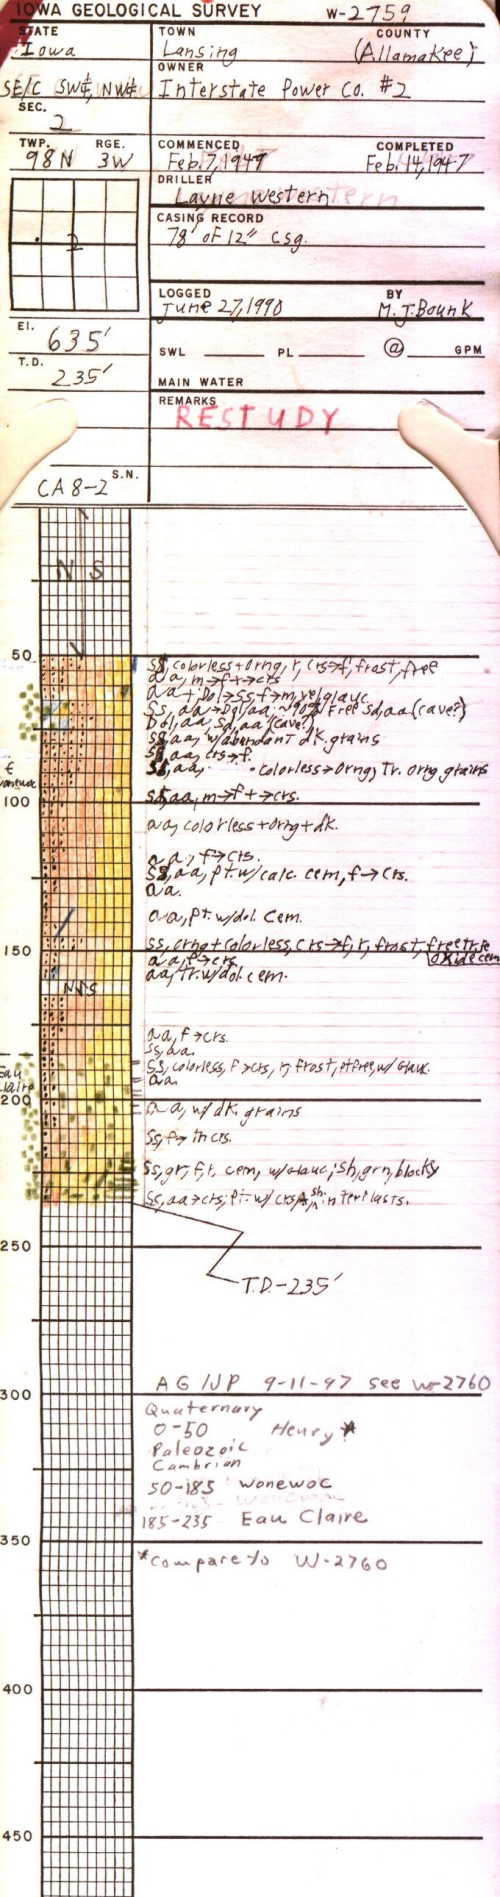 IOWA GEOLOGICAL SURVEY W-2759
STATE TOWN COUNTY
Iowa Lansing (Allamakee)
OWNER
SE/C SW¼, NW¼ Interstate Power Co. #2
SEC.
2
TWP. RGE. COMMENCED COMPLETED
98N 3W Feb. 7, 1947 Feb. 14, 1947
DRILLER
Layne Western
CASING RECORD
2 78' of 12" csg.
LOGGED BY
June 27, 1990 M.J. Bounk
El.
635'
SWL PL @ GPM
T.D.
235'
MAIN WATER
REMARKS
RESTUDY
S.N.
CA 8-2
N S
50 SS, colorless+Orng, r, crs→f, frost, free
aa, m→f+→crs
aa+; Dol→SS f→m, glauc
SS, aa→Dol, aa. ~90% Free Sd, aa (cave?)
Dol, aa, Sd, aa (cave?)
SS, aa, w/abendant dk. grains
SS, aa, crs→f.
SS, aa, colorless→Orng, Tr. Orng grains
100 SS, aa, m→f+→crs.
aa, colorless+Orng+dk.
aa, f→crs.
SS, aa, pt. w/ calc. cem, f→crs.
aa.
aa, Pt. w/dol. cem.
150 SS, orng+colorless, crs→f, r, frost, free tr. fe
oxide cem
aa, f→crs
aa, Tr. w/dol. cem.
N S
aa, f→crs.
SS, aa.
Eau
Claire
SS, colorless, F→crs, r, frost, pt free, w/glauc.
aa.
200 aa, w/ dk. grains
SS, f→m crs.
SS, gr, f, r, cem, w/glauc; sh, grn, blocky
SS, aa→crs; Pt. w/ crs sh interclasts.
250
T.D.-235'
AG/JP 9-11-97 see W-2760
300
Quaternary
0-50 Henry *
Paleozoic
Cambrian
50-185 Wonewoc
185-235 Eau Claire
350
*Compare to W-2760
400
450